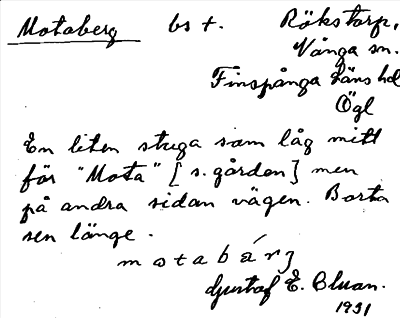 Motaberg bs t. Rökstorp,
Vånga sn.
Finspånga läns hd
Ögl
En liten stuga som låg mitt
för "Mota" [s. gården] men
på andra sidan vägen. Borta
sen länge.
motabárj
Gustaf E. Bluan.
1931